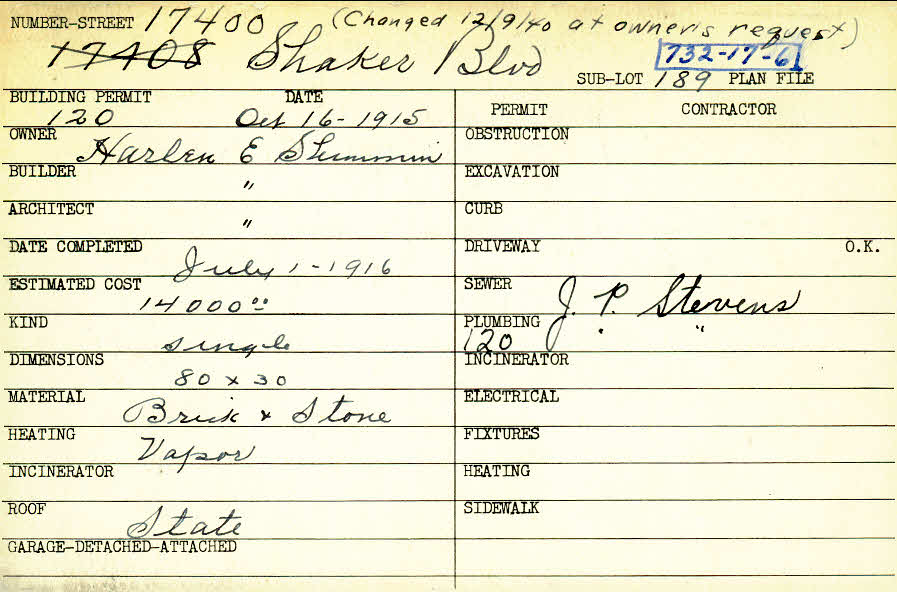 NUMBER-STREET 17400 (Changed 12/9/40 at owner's request)
17408 Shaker Blvd 732-17-6
SUB-LOT 189 PLAN FILE
BUILDING PERMIT DATE
120 Oct 16-1915
PERMIT CONTRACTOR
OWNER Harlen E
OBSTRUCTION
BUILDER "
EXCAVATION
ARCHITECT "
CURB
DATE COMPLETED July 1-1916
DRIVEWAY O.K.
ESTIMATED COST 14000 00
SEWER J. P. Stevens
KIND single
PLUMBING 120 " "
DIMENSIONS 80 x 30
INCINERATOR
MATERIAL Brick & Stone
ELECTRICAL
HEATING Vapor
FIXTURES
INCINERATOR
HEATING
ROOF State
SIDEWALK
GARAGE-DETACHED-ATTACHED